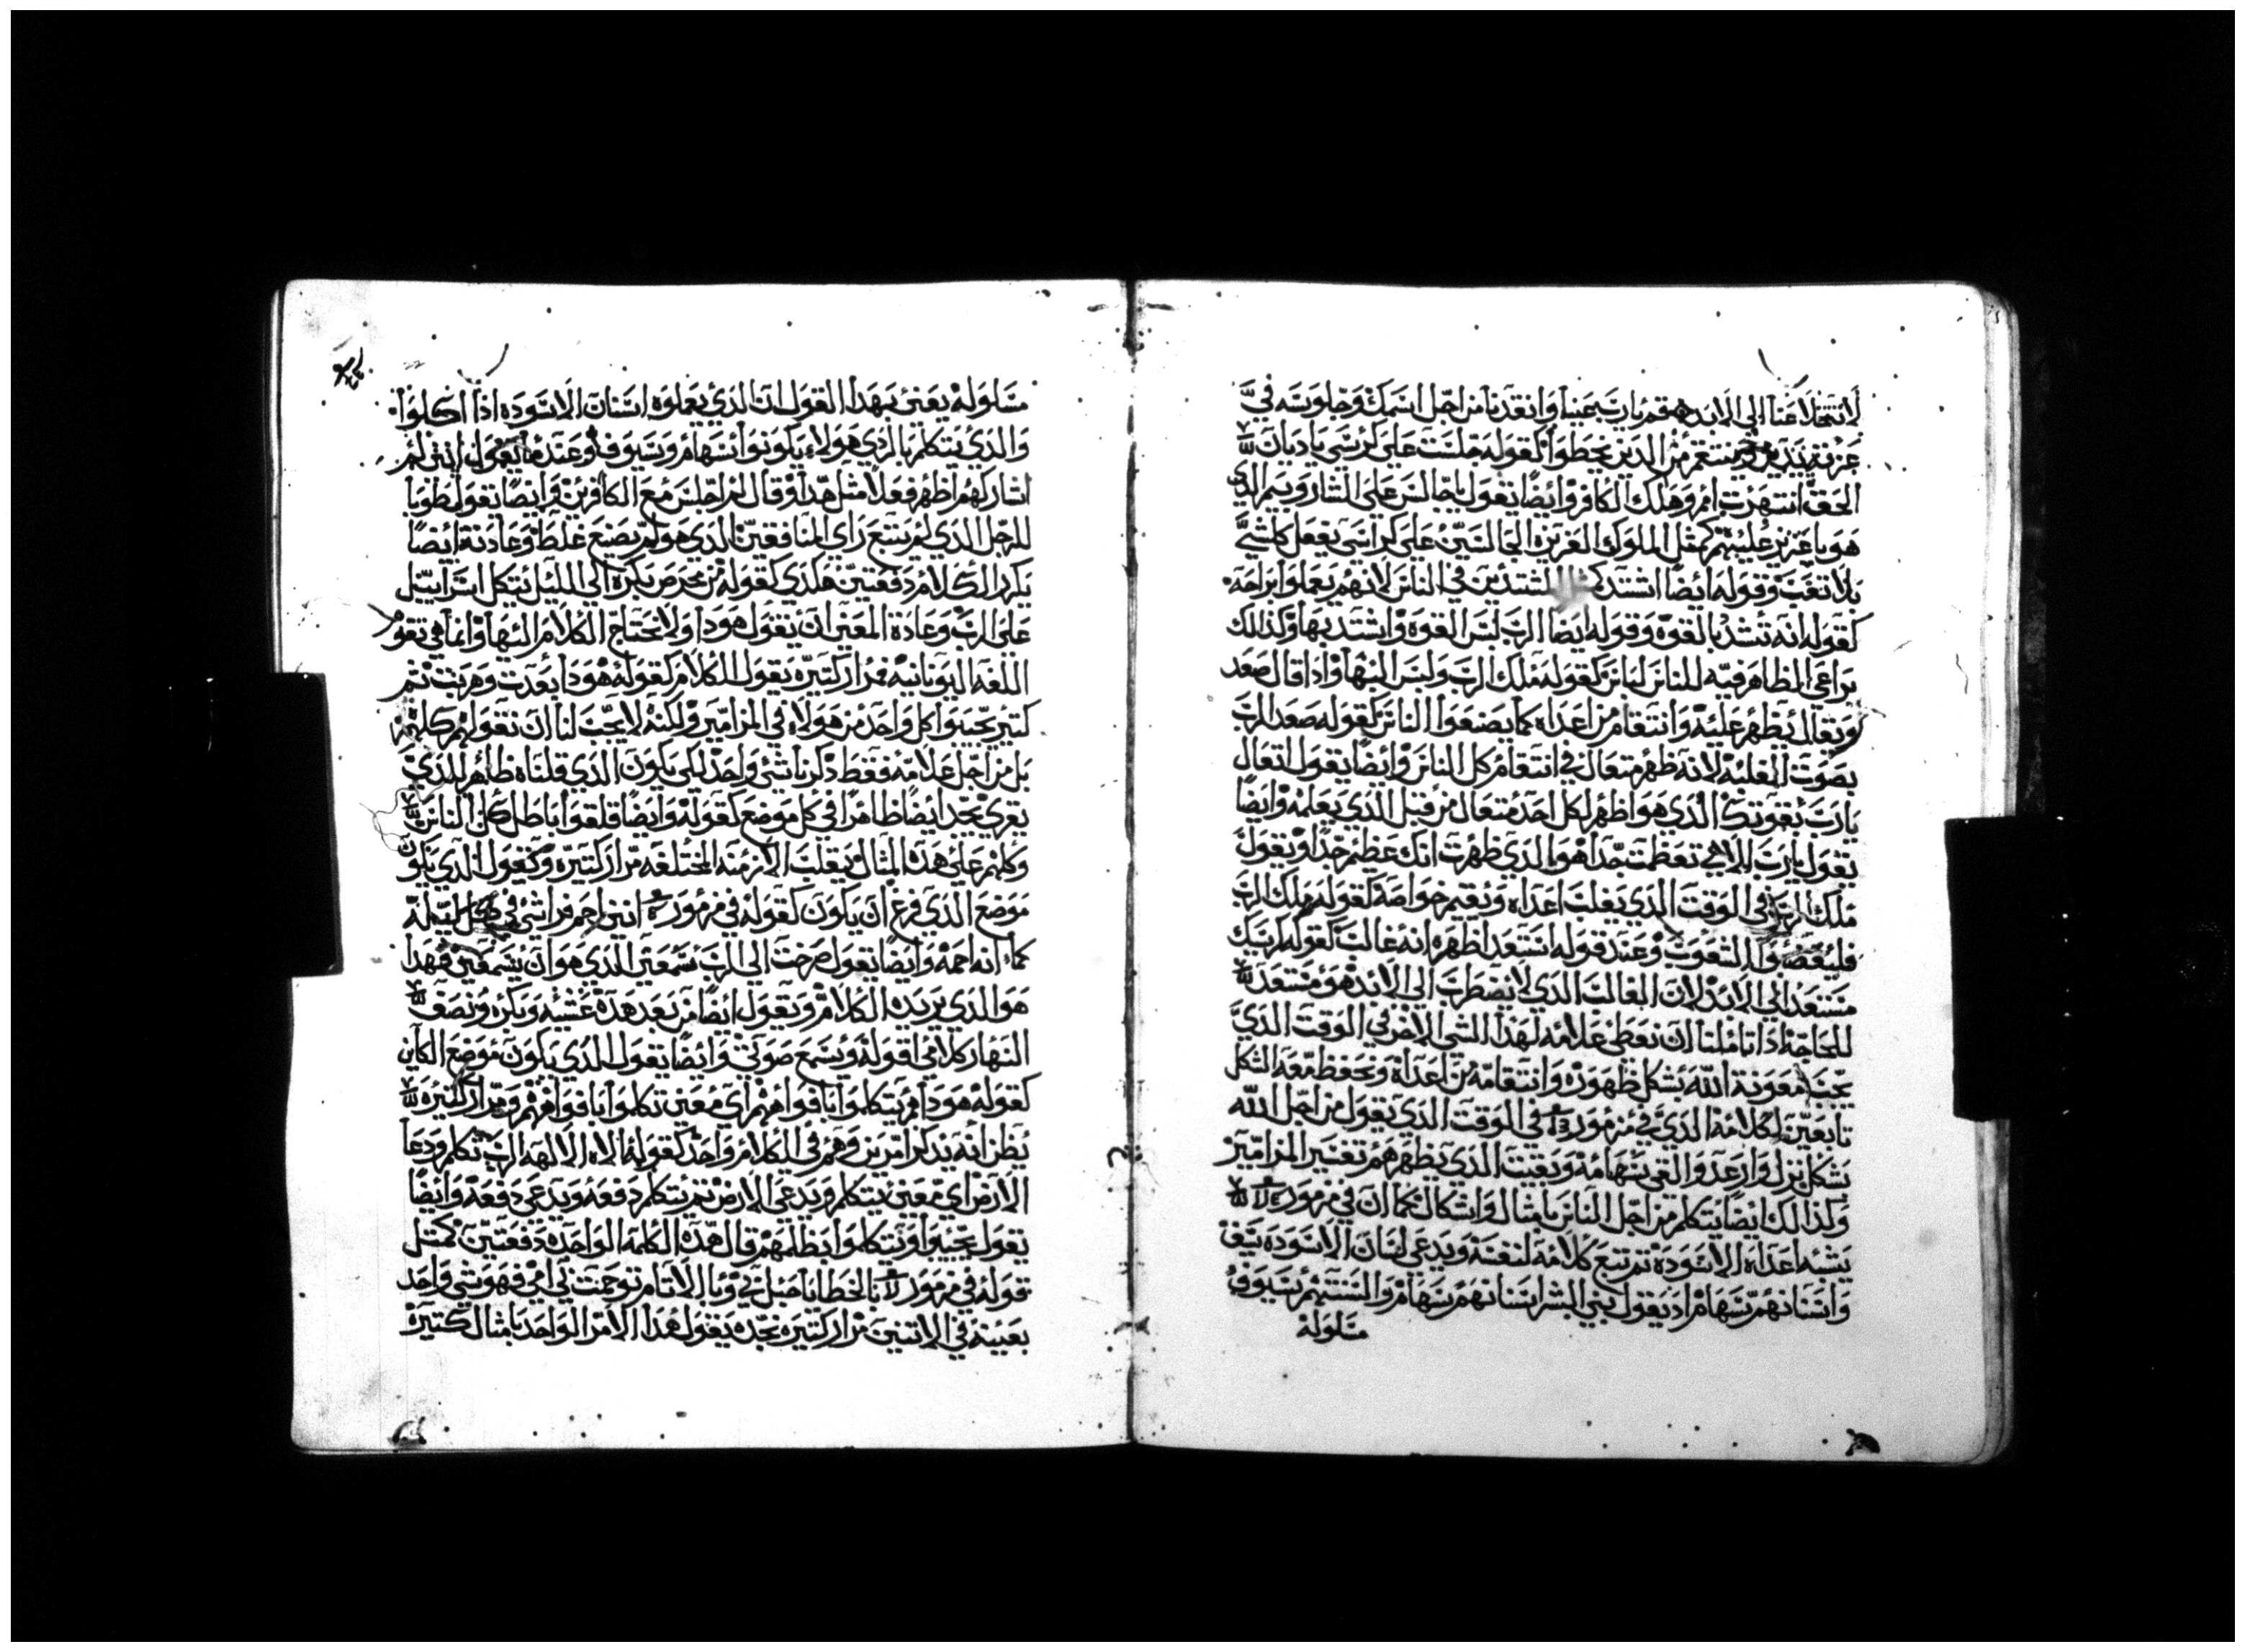 لا تتخلا عنا الي الابد قم يارب عينا وانقدنا من اجل اسمك وجلوسه في
عزته يدين وينتقم من الدين يخطوا كقوله جلست علي كرسي يا ديان
الحق انتهرت امم وهلك الكافر وايضا تقول يا جالس علي الشاروبيم الدي
هو يا عزيز عليهم كمثل الملوك العزيزه الجالسين علي كراسي يفعل كلشي
بلا تعب وقوله ايضا اشتد المشتدين في الناس لانهم يعملوا براحه
كقوله انه تشد بالقوه وقوله ايضا الرب لبس القوه واشتد بها وكدلك
يراعي الظاهر فيه للناس لباس كقوله ملك الرب ولبس البها وادا قال صعد
وتعالي يظهر عليه وانتقام من اعداه كما يصنعوا الناس كقوله صعد الرب
بصوت الغلبه لانه ظهر متعال في انتقام كل الناس وايضا يقول لتعال
يارب بقوتك الدي هو اظهر لكل احد متعال من قبل الدي يعلمه وايضا
يقول يارب الاهي تعظمت جدا هو الدي ظهرت انك عظيم جدا ويقول
ملك الرب في الوقت الدي يغلب اعداه ويقيم خواصه كقوله ملك الرب
فليغضبوا الشعوب وعند قوله استعد اظهره انه غالب كقوله كرسيك
مستعد الي الابد لان الغالب الدي لا يضطرب الي الابد هو مستعد
للحاجة ادا تاملنا ان نعطي علامه لهدا الشي الاخر في الوقت الدي
يجب معونة الله بشكل ظهوره وانتقامه من اعداه ونحفظ معه الشكل
تابعين لكلامه الدي في مزمور في الوقت الدي يقول من اجل الله
بشكل نزل وارعد والقي سهامه وبقيت الدي يظهرهم تفسير المزامير
ولدالك ايضا يتكلم من اجل الناس بامثال واشكال كما ان في مزمور
يشبه اعداه الاسوده ثم تبع كلامه لنفسه ويدعي لسان الاسوده سيف
واسنانهم سهام اد يقول بني البشر اسنانهم سهام والسنتهم سيوف
مسلوله
مسلوله يعني بهدا القول ان الدي يعملوه اسنان الاسوده ادا اكلوا
والدي يتكلم بالردي هولاء يكونوا اسهام وسيوف وعنده يقول انني لم
اشاركهم اظهر فعلا مثل هدا وقال لم اجلس مع الكافرين وايضا يقول طوبا
للرجل الدي لم يتبع راي المنافقين الدي هو لم يصنع غلط وعادته ايضا
يكرر الكلام دفعتين هكدي كقوله من محرس بكره الي الليل يتكل اسراييل
علي الرب وعادة المعني ان يقول هودا ولا يحتاج الكلام اليها وانما هي تقوم
اللغه اليونانيه مرار كتيره يقول الكلام كقوله هودا بعدت وهربت تم
كتير يجيبوا كل واحد من هولاء في المزامير ولكنه لا يجب لنا ان نقولهم كلهم
بل من اجل علامه فقط دكرنا شي واحد لكي يكون الدي قلناه ظاهر للدي
يقري يجد ايضا ظاهرا في كل موضع كقوله وايضا قلقوا باطل كل الناس
وكلهم علي هده المثال ويقلب الازمنه المختلفه مرار كتيره وكقول الدي يكون
موضع الدي فرغ ان يكون كقوله في مزمور انني احم فراشي في كل ليله
كما انه احمه وايضا يقول صرخت الي الرب سمعني الدي هو ان يسمعني فهدا
هو الدي يريده الكلام ويقول ايضا من بعد هده عشيه وبكره ونصف
النهار كلامي اقوله ويسمع صوتي وايضا يقول الدي يكون موضع الكاين
كقوله هودا هم يتكلموا بافواههم اي معني تكلموا بافواههم ومرار كتيره
يظن انه يدكر امرين وهم في الكلام واحد كقوله الاه الالهه الرب تكلم ودعا
الارض اي بمعني يتكلم ويدعي الارض تم يتكلم دفعه ويدعي دفعه وايضا
يقول يجيبوا ويتكلموا بظلمهم قال هده الكلمه الواحده دفعتين كمتل
قوله في مزمور بالخطايا حبل بي وبالاتام توحمت بي امي فهو شي واحد
بعينه في الاتنين مرار كتيره نجده يقول هدا الامر الواحد بامثال كتيره